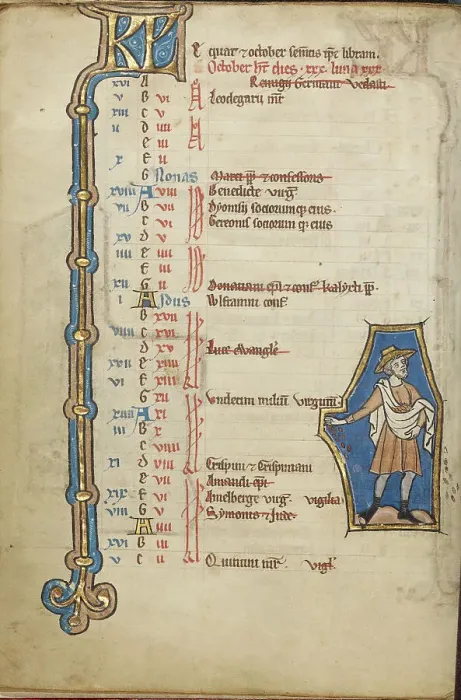 KL
equat ⁊ october semtis ipe libram.
October ht dies .xxx. luna xxx
xvi A Remigii Germani Vedasti
v B vi Leodegarii mr
xiii c v
ii d iiii
e iii
x f ii
G Nonas Marci pp ⁊ confessoris
xviii A viii Benedicte virg
vii B vii Dyonisii sociorumq; eius.
c vi Gereonis sociorum q; eius
xv d v
iiii e iiii
f iii
xii G ii Donatiani epi ⁊ conf kalixti pp.
i A Idus Wlframni conf
B xvii
viiii c xvi
d xv Luce ewangle
xvii e xiiii
vi f xiii
G xii Undecim milium virginum
xiiii A xi
iii B x
c viiii
xi d viii Crispini ⁊ Crispiniani
e vii Amandi epi
xix f vi Amelberge virg. vigilia
viii G v Symonis ⁊ Jude
A iiii
xvi B iii
v c ii Quintini mr. vigl